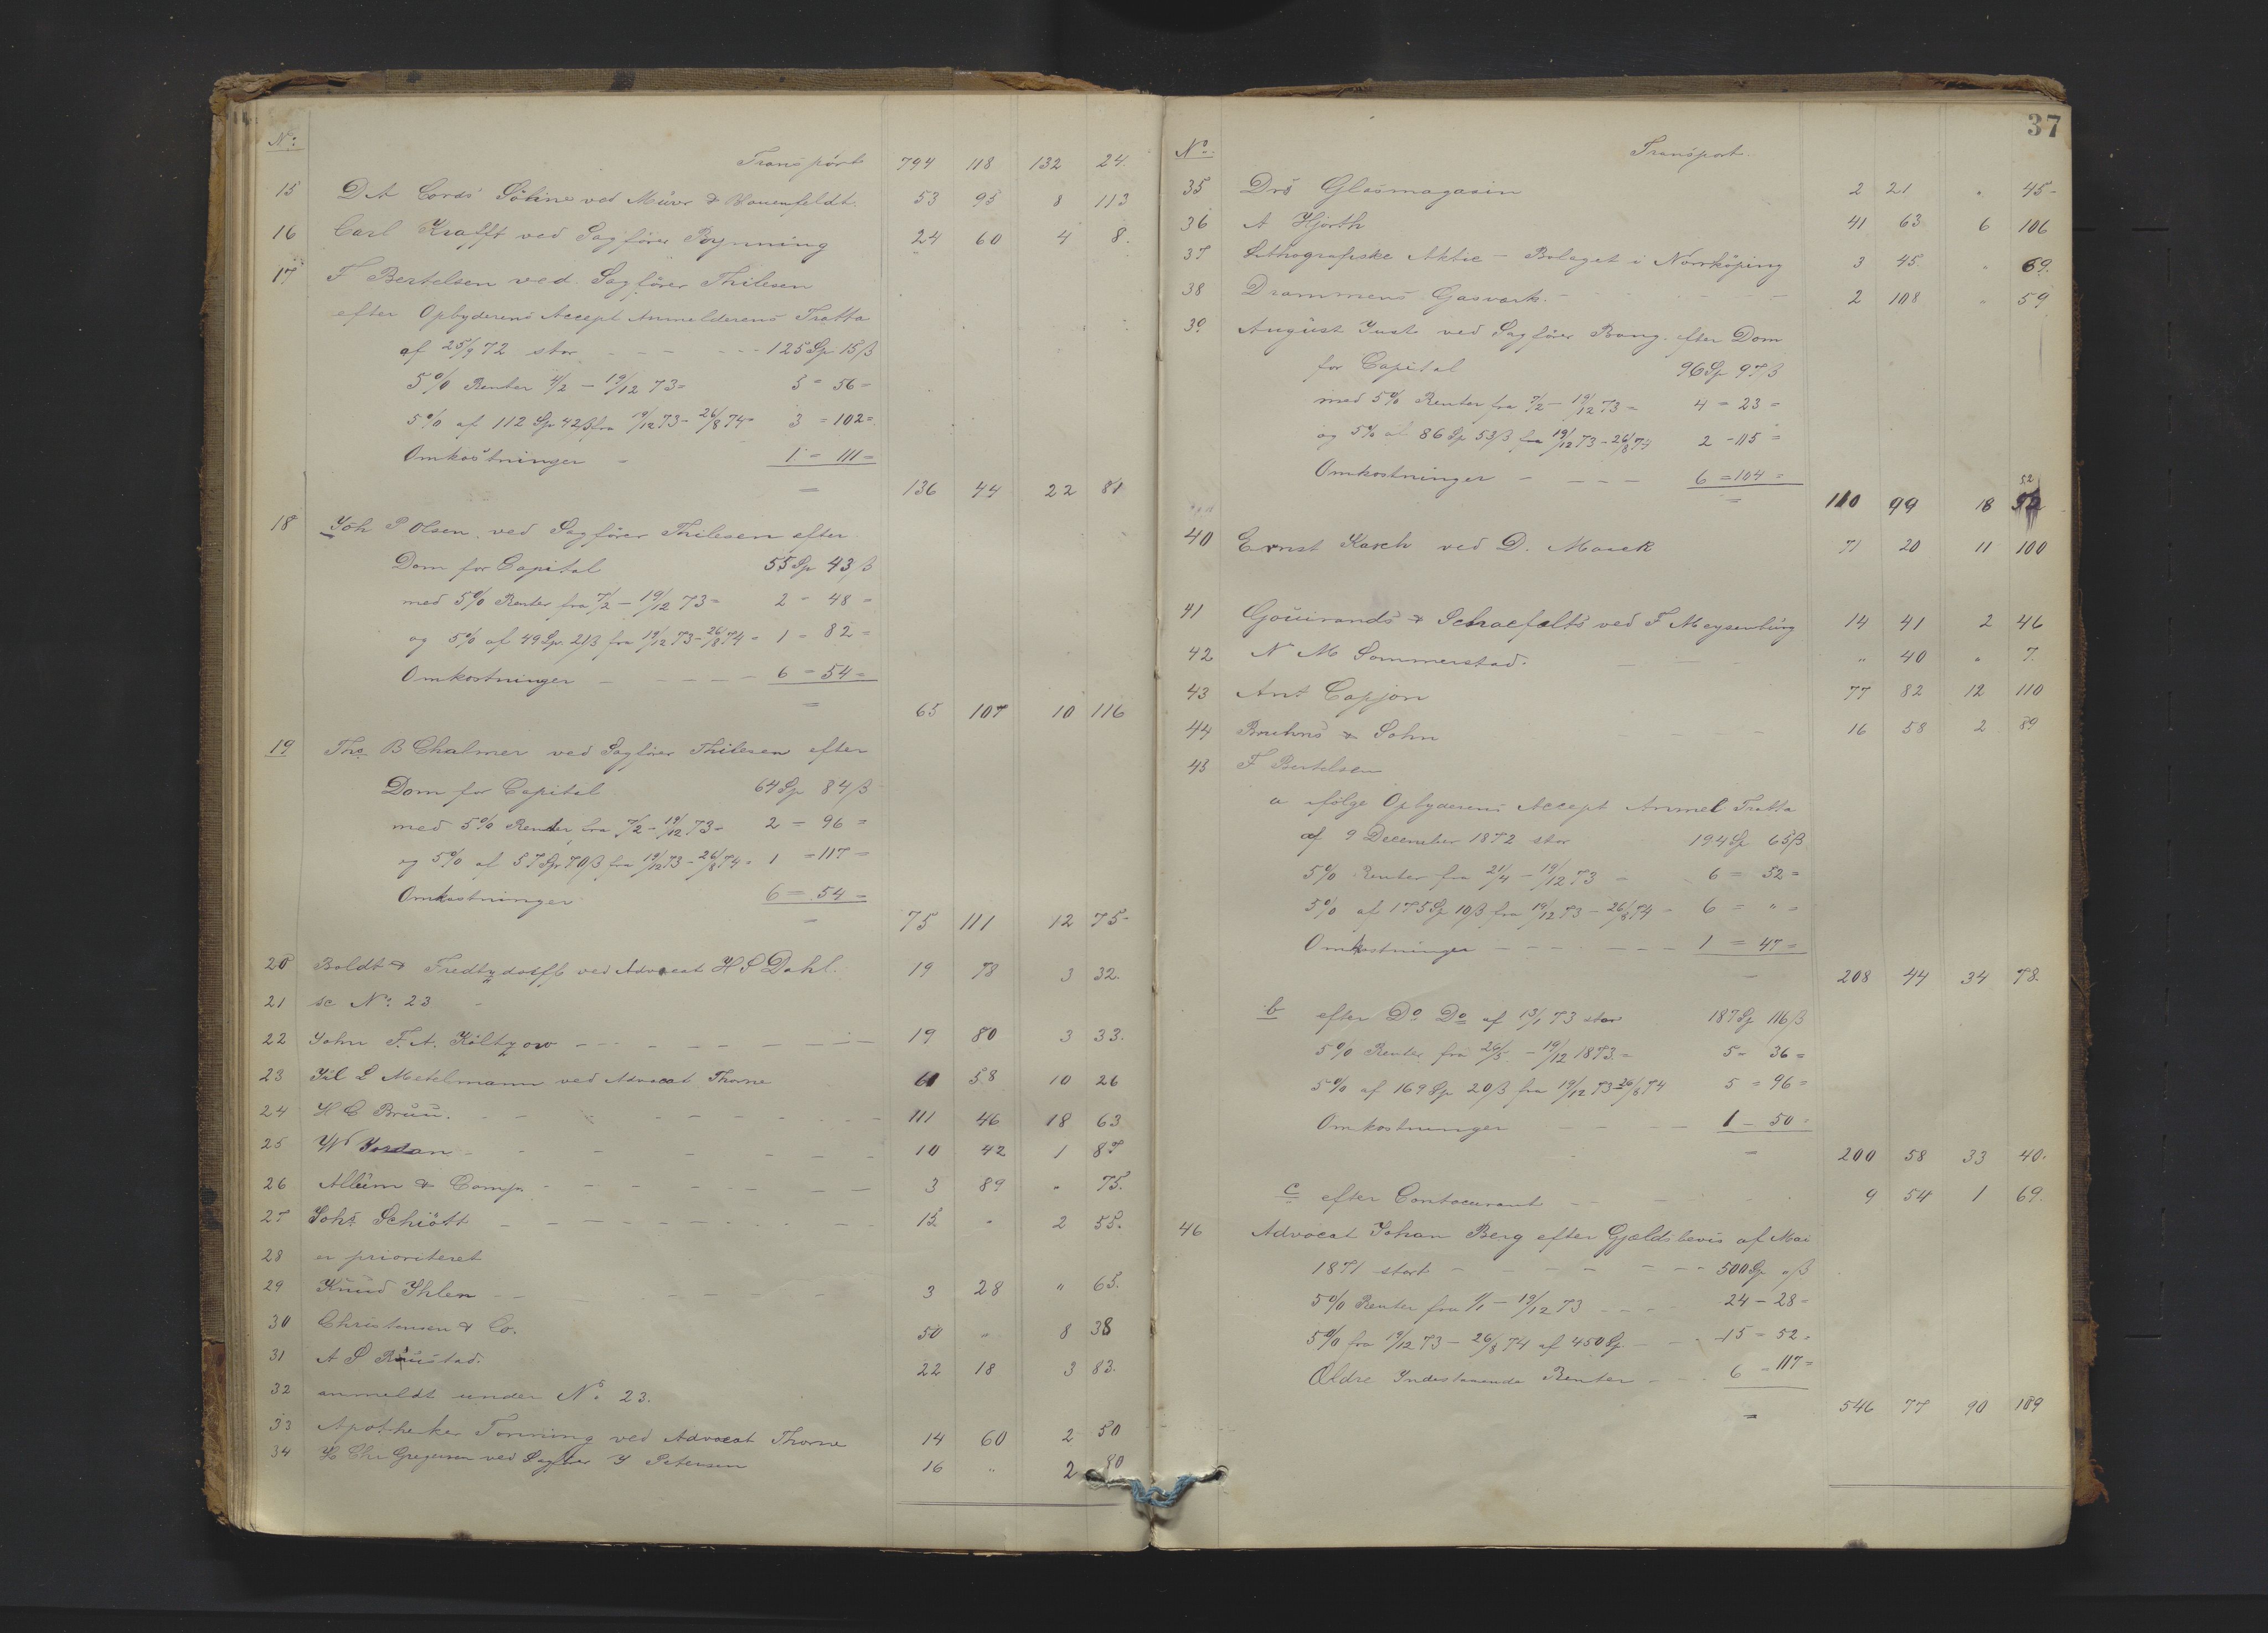 No:
Transport 794 118 132 24.
15 D A Cords Söhne ved Mürer & Hauenfeldt. 53 95 8 113
16 Carl Krafft ved Sagfører Bynning 24 60 4 8.
17 F Bertelsen ved Sagfører Thilesen
efter Opbyderens Accept Anmelderens Tratta
af 25/9 72 stor - - - 125 Sp 15 ß
5% Renter 4/2 - 19/12 73 = 3 = 56 =
5% af 112 Sp 42 ß fra 19/12 73 - 26/8 74 = 3 = 102 =
Omkostninger = 1 = 111 =
= 136 44 22 81
18 Joh P Olsen ved Sagfører Thilesen efter
Dom for Capital 55 Sp 43 ß
med 5% Renter fra 7/2 - 19/12 73 = 2 = 48 =
og 5% af 49 Sp 21 ß fra 19/12 73 - 26/8 74 = 1 = 82 =
Omkostninger - - - - - 6 = 54 =
= 65 107 10 116
19 Tho B Chalmer ved Sagfører Thilesen efter
Dom for Capital 64 Sp 84 ß
med 5% Renter fra 7/2 - 19/12 73 = 2 = 96 =
og 5% af 57 Sp 70 ß fra 19/12 73 - 26/8 74 = 1 = 117 =
Omkostninger 6 = 54 =
= 75 111 12 75 -
20 Boldt & ved Advocat H S Dahl. 19 78 3 32.
21 se No: 23 -
22 John F. A. Költzow - - - - - - - 19 80 3 33.
23 Jul L Metelmann ved Advocat Thorne 61 58 10 26
24 H C Bruu. - - - - - - - 111 46 18 63
25 W Jordan - - - - - - 10 42 1 87
26 Allum & Comp. - - - - - - 3 89 " 75.
27 Johs Schiött - - - - - - - 15 " 2 55.
28 er prioriteret
29 Knud Ihlen - - - - - - 3 28 " 65.
30 Christensen & Co. 50 " 8 38
31 A S Ruustad. 22 18 3 83.
32 anmeldt under No. 23.
33 Apotheker Tonning ved Advocat Thorne 14 60 2 50
34 H Chr Gregersen ved Sagfører J Petersen 16 " 2 80
37
No.
Transport
35 Drs Glasmagasin 2 21 " 45 -
36 A Hjorth 41 63 6 106
37 Lithografiske Aktie - Bolaget i Norrköping 3 45 " 69.
38 Drammens Gasverk. - - - 2 108 " 59
39 August Just ved Sagfører Bang efter Dom
for Capital 96 Sp 97 ß
med 5% Renter fra 7/2 - 19/12 73 = 4 = 23 =
og 5% af 86 Sp 53 ß fra 19/12 73 - 26/8 74 2 - 115 =
Omkostninger - - - - 6 = 104 =
52
= 110 99 18 52
40 Ernst Karch ved D. Maack 71 20 11 100
41 Gouirands & ved F Meysenburg 14 41 2 46
42 N M Sommerstad. - - - " 40 " 7.
43 Ant Capjon 77 82 12 110
44 Bruhns & Sohn - - - - - 16 58 2 89
43 F Bertelsen
a ifølge Opbyderens Accept Anmel Tratta
af 9 December 1872 stor 194 Sp 65 ß
5% Renter fra 21/4 - 19/12 73 = 6 = 52 =
5% af 175 Sp 10 ß fra 19/12 73 - 26/8 74 = 6 = " =
Omkostninger - - - - - 1 = 47 =
- 208 44 34 78.
b efter Do Do af 13/1 73 stor 187 Sp 116 ß
5% Renter fra 26/5 - 19/12 1873 = 5 = 36 =
5% af 169 Sp 20 ß fra 19/12 73 - 26/8 74 5 = 96 =
Omkostninger - - - - 1 - 50 =
= 200 58 33 40.
c efter Contocurant - - - 9 54 1 69.
46 Advocat Johan Berg efter Gjældsbevis af Mai
1871 stort - - - - - - - 500 Sp " ß
5% Renter fra 1/1 - 19/12 73 - - - - 24 - 28 =
5% fra 19/12 73 - 26/8 74 af 450 Sp - - - 15 = 52 =
Ældre Indestaaende Renter - - - 6 = 117 =
= 546 77 90 109